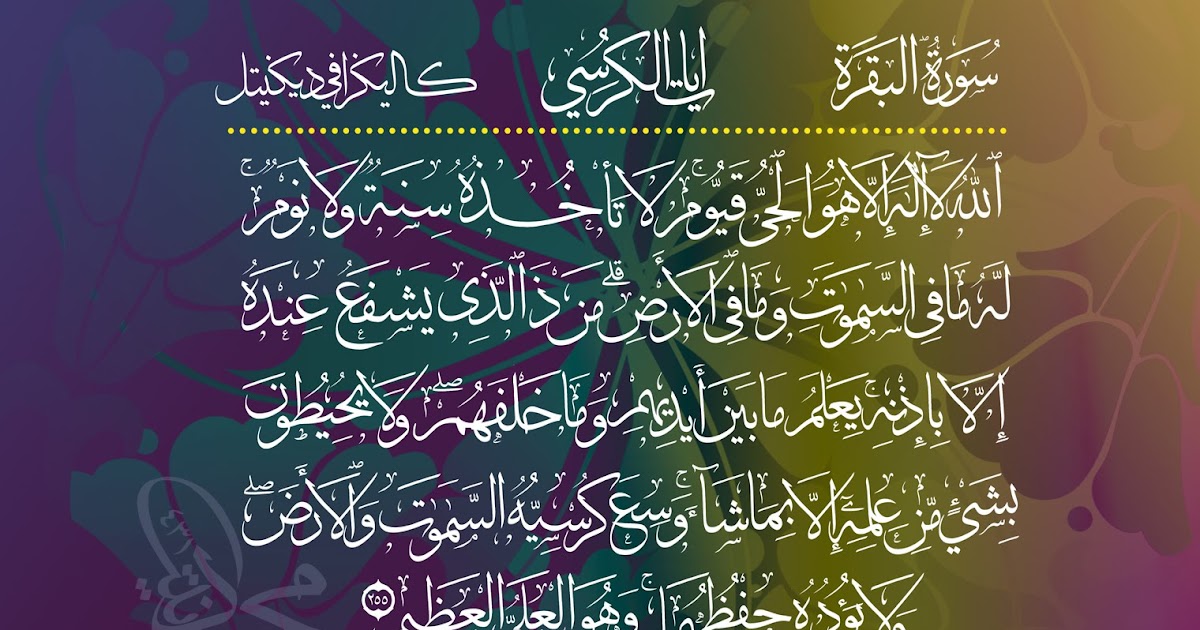 سُورَةُ الْبَقَرَة ايات الكرسي كاليكرافي ديكيتل
ٱللَّهُ لَآ إِلَٰهَ إِلَّا هُوَ ٱلْحَىُّ قَيُّومُ ۚ لَا تَأْخُذُهُ سِنَةٌ وَلَا نَوْمٌ ۚ
لَّهُ مَا فِي السَّمَوَتِ وَمَا فِي ٱلْأَرْضِ ۗ مَن ذَا ٱلَّذِى يَشْفَعُ عِندَهُ
إِلَّا بِإِذْنِهِ ۚ يَعْلَمُ مَا بَيْنَ أَيْدِيهِمْ وَمَا خَلْفَهُمْ ۖ وَلَا يُحِيطُونَ
بِشَيْءٍ مِّنْ عِلْمِهِٓ إِلَّا بِمَا شَآءَ ۚ وَسِعَ كُرْسِيُّهُ السَّمَوَتِ وَٱلْأَرْضَ ۖ
وَلَا يَؤُدُهُ حِفْظُهُمَا ۚ وَهُوَ الْعَلِىُّ الْعَظِيمُ ٢٥٥